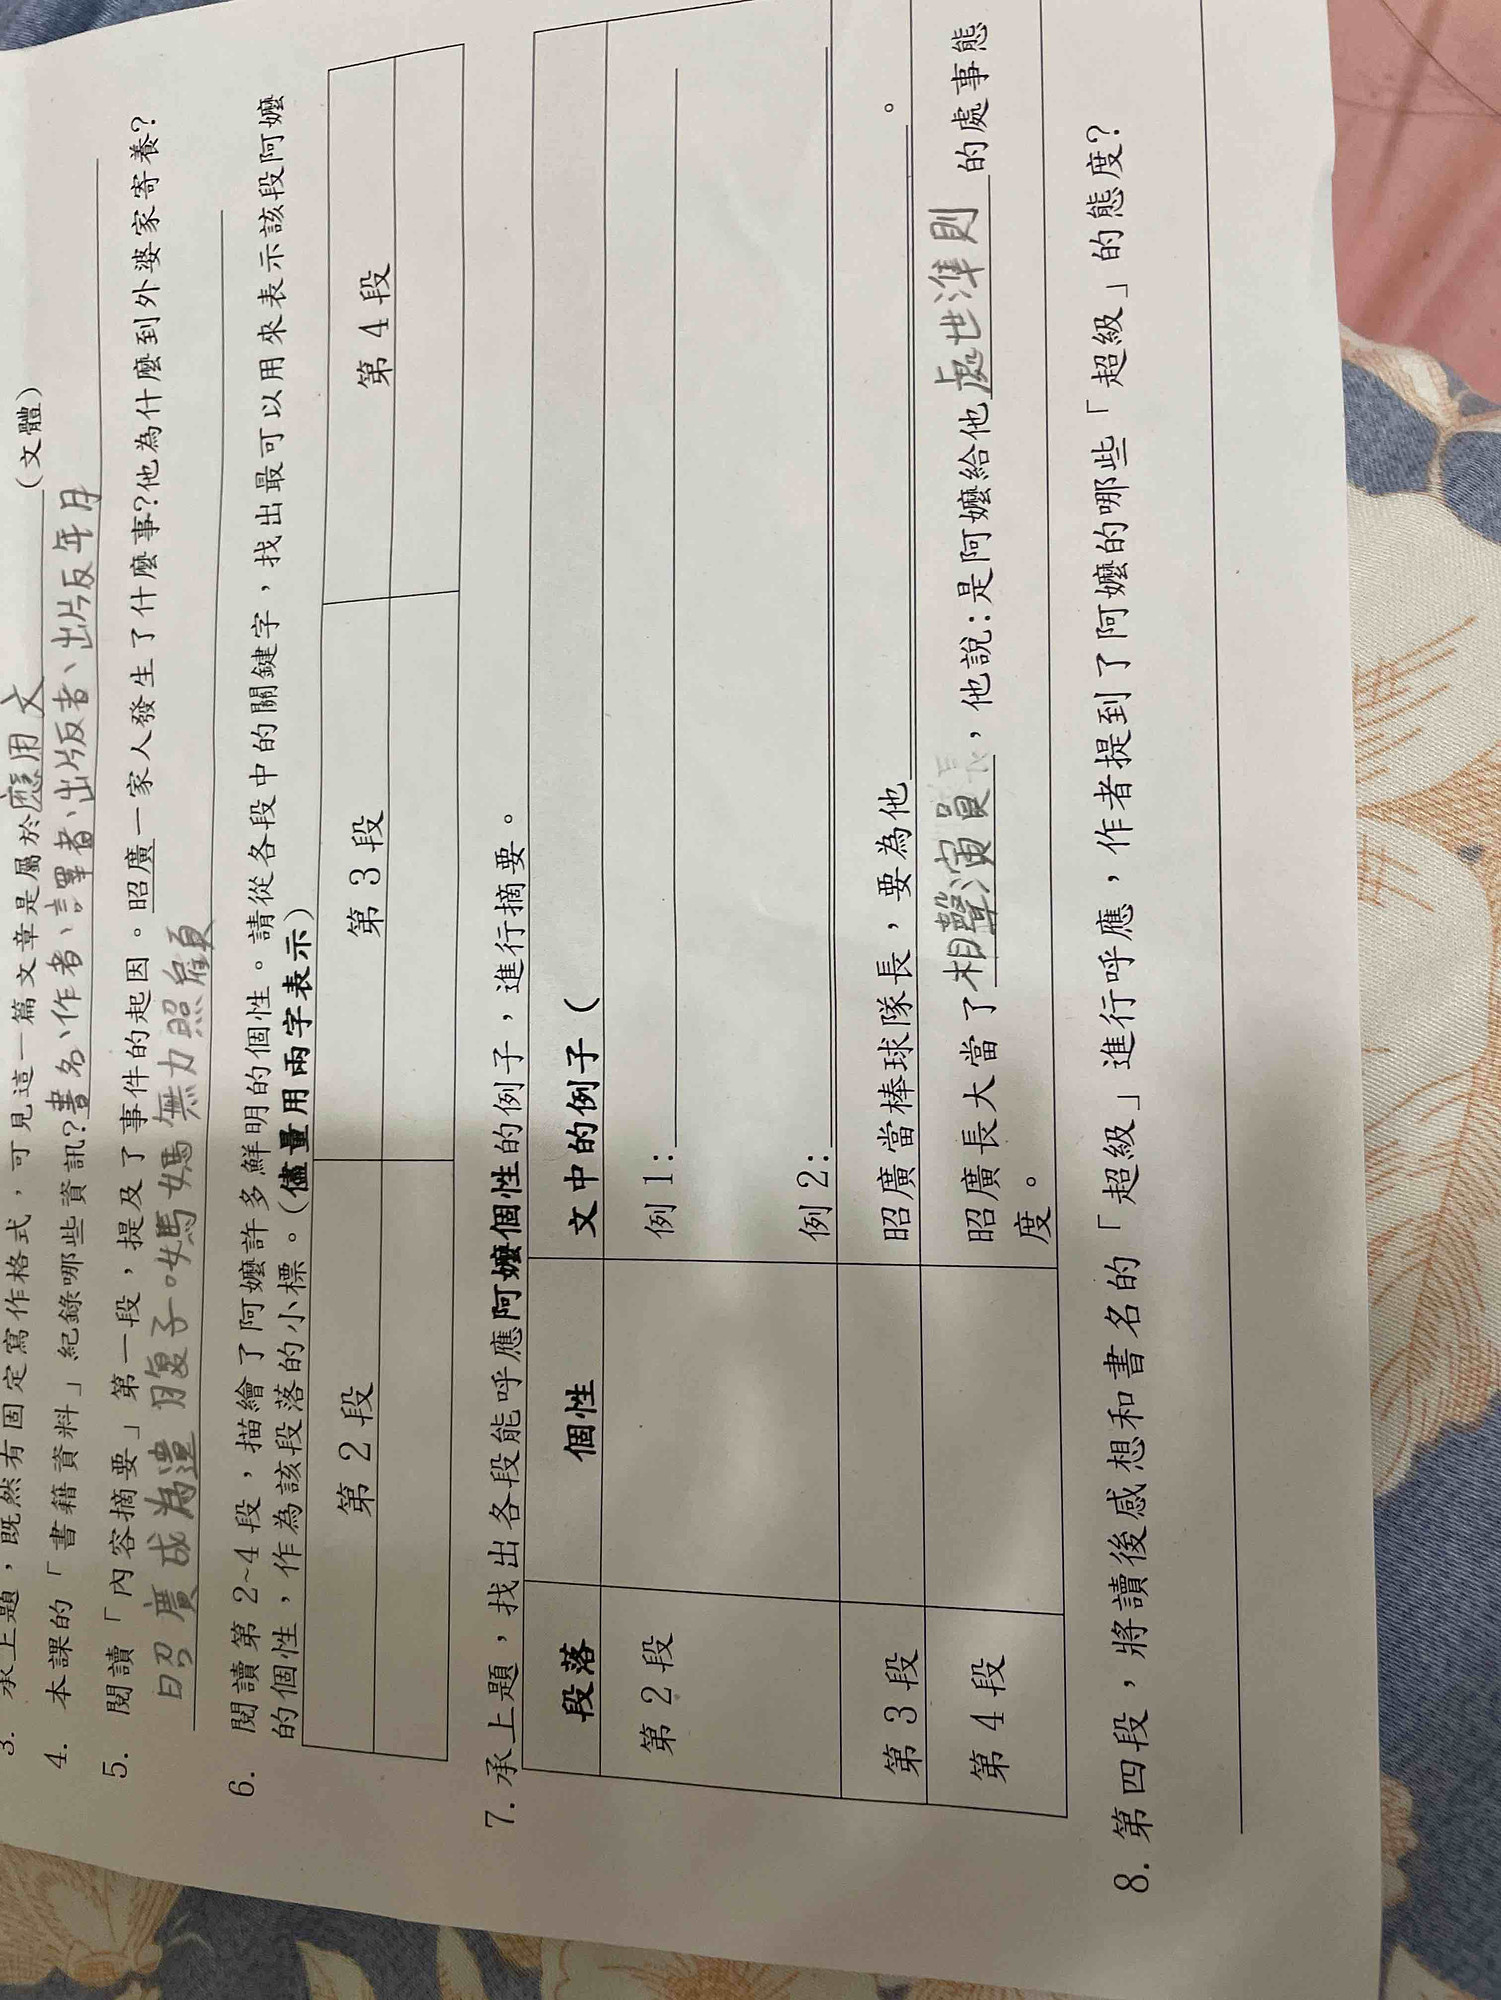 3. 承上題，既然有固定寫作格式，可見這一篇文章是屬於應用文（文體）
4. 本課的「書籍資料」紀錄哪些資訊?書名、作者、譯者、出版者、出版年月
5. 閱讀「內容摘要」第一段，提及了事件的起因。昭廣一家人發生了什麼事?他為什麼到外婆家寄養?
昭廣成為遺腹子，媽媽無力照顧
6. 閱讀第2~4段，描繪了阿嬤許多鮮明的個性。請從各段中的關鍵字，找出最可以用來表示該段阿嬤
的個性，作為該段落的小標。（儘量用兩字表示）
第2段 第3段 第4段
7. 承上題，找出各段能呼應阿嬤個性的例子，進行摘要。
段落 個性 文中的例子（
第2段 例1:
例2:
第3段 昭廣當棒球隊長，要為他 。
第4段 昭廣長大當了相聲演員，他說:是阿嬤給他處世準則的處事態
度。
8. 第四段，將讀後感想和書名的「超級」進行呼應，作者提到了阿嬤的哪些「超級」的態度?